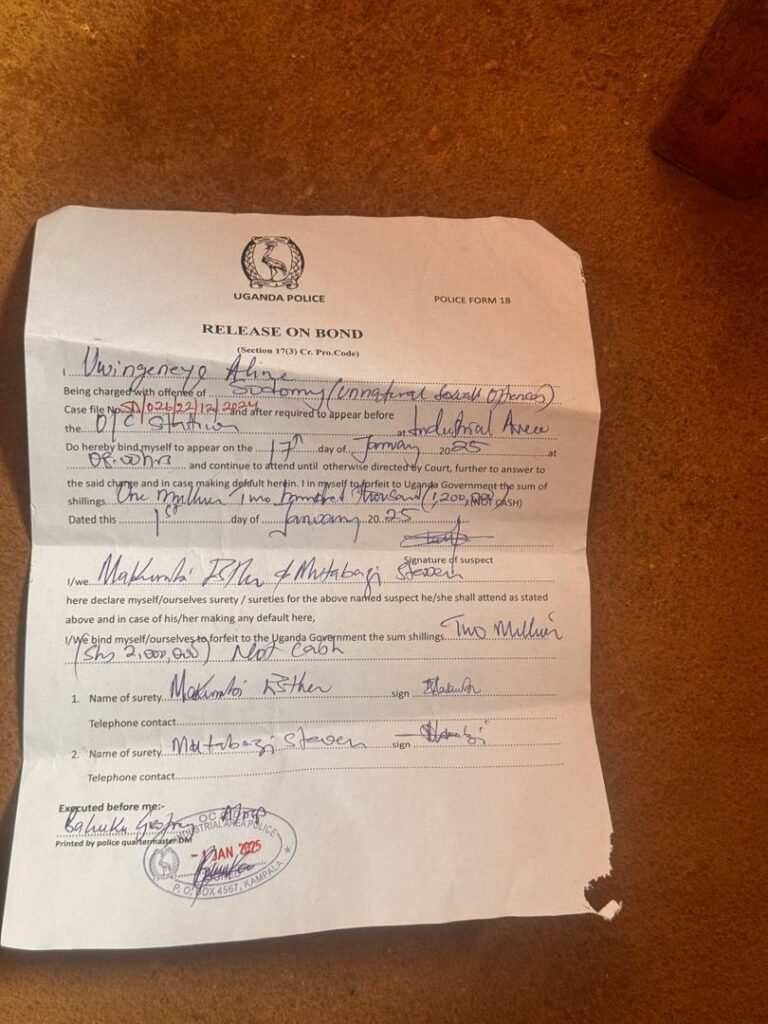 UGANDA POLICE
POLICE FORM 18
RELEASE ON BOND
(Section 17(3) Cr. Pro.Code)
I Uwingeneye Aline
Being charged with offence of Sodomy (Unnatural Sexual Offences)
Case file No SD/026/22/12/2024 and after required to appear before
the O/C Station at Industrial Area
Do hereby bind myself to appear on the 17th day of January 2025 at
08:00hrs and continue to attend until otherwise directed by Court, further to answer
to the said charge and in case making default herein. I in myself to forfeit to Uganda Government the sum of
shillings One Million Two hundred thousand (1,200,000) (NOT CASH)
Dated this 1st day of January 2025
Signature of suspect
I/we Makumbi Esther & Mutabazi Steven
here declare myself/ourselves surety / sureties for the above named suspect he/she shall attend as stated
above and in case of his/her making any default here,
I/We bind myself/ourselves to forfeit to the Uganda Government the sum shillings Two Million
(Shs 2,000,000) Not Cash
1. Name of surety Makumbi Esther sign
Telephone contact
2. Name of surety Mutabazi Steven sign
Telephone contact
Executed before me:-
Printed by police quartermaster DM
INDUSTRIAL AREA POLICE
JAN 2025
P. O. BOX 4567, KAMPALA